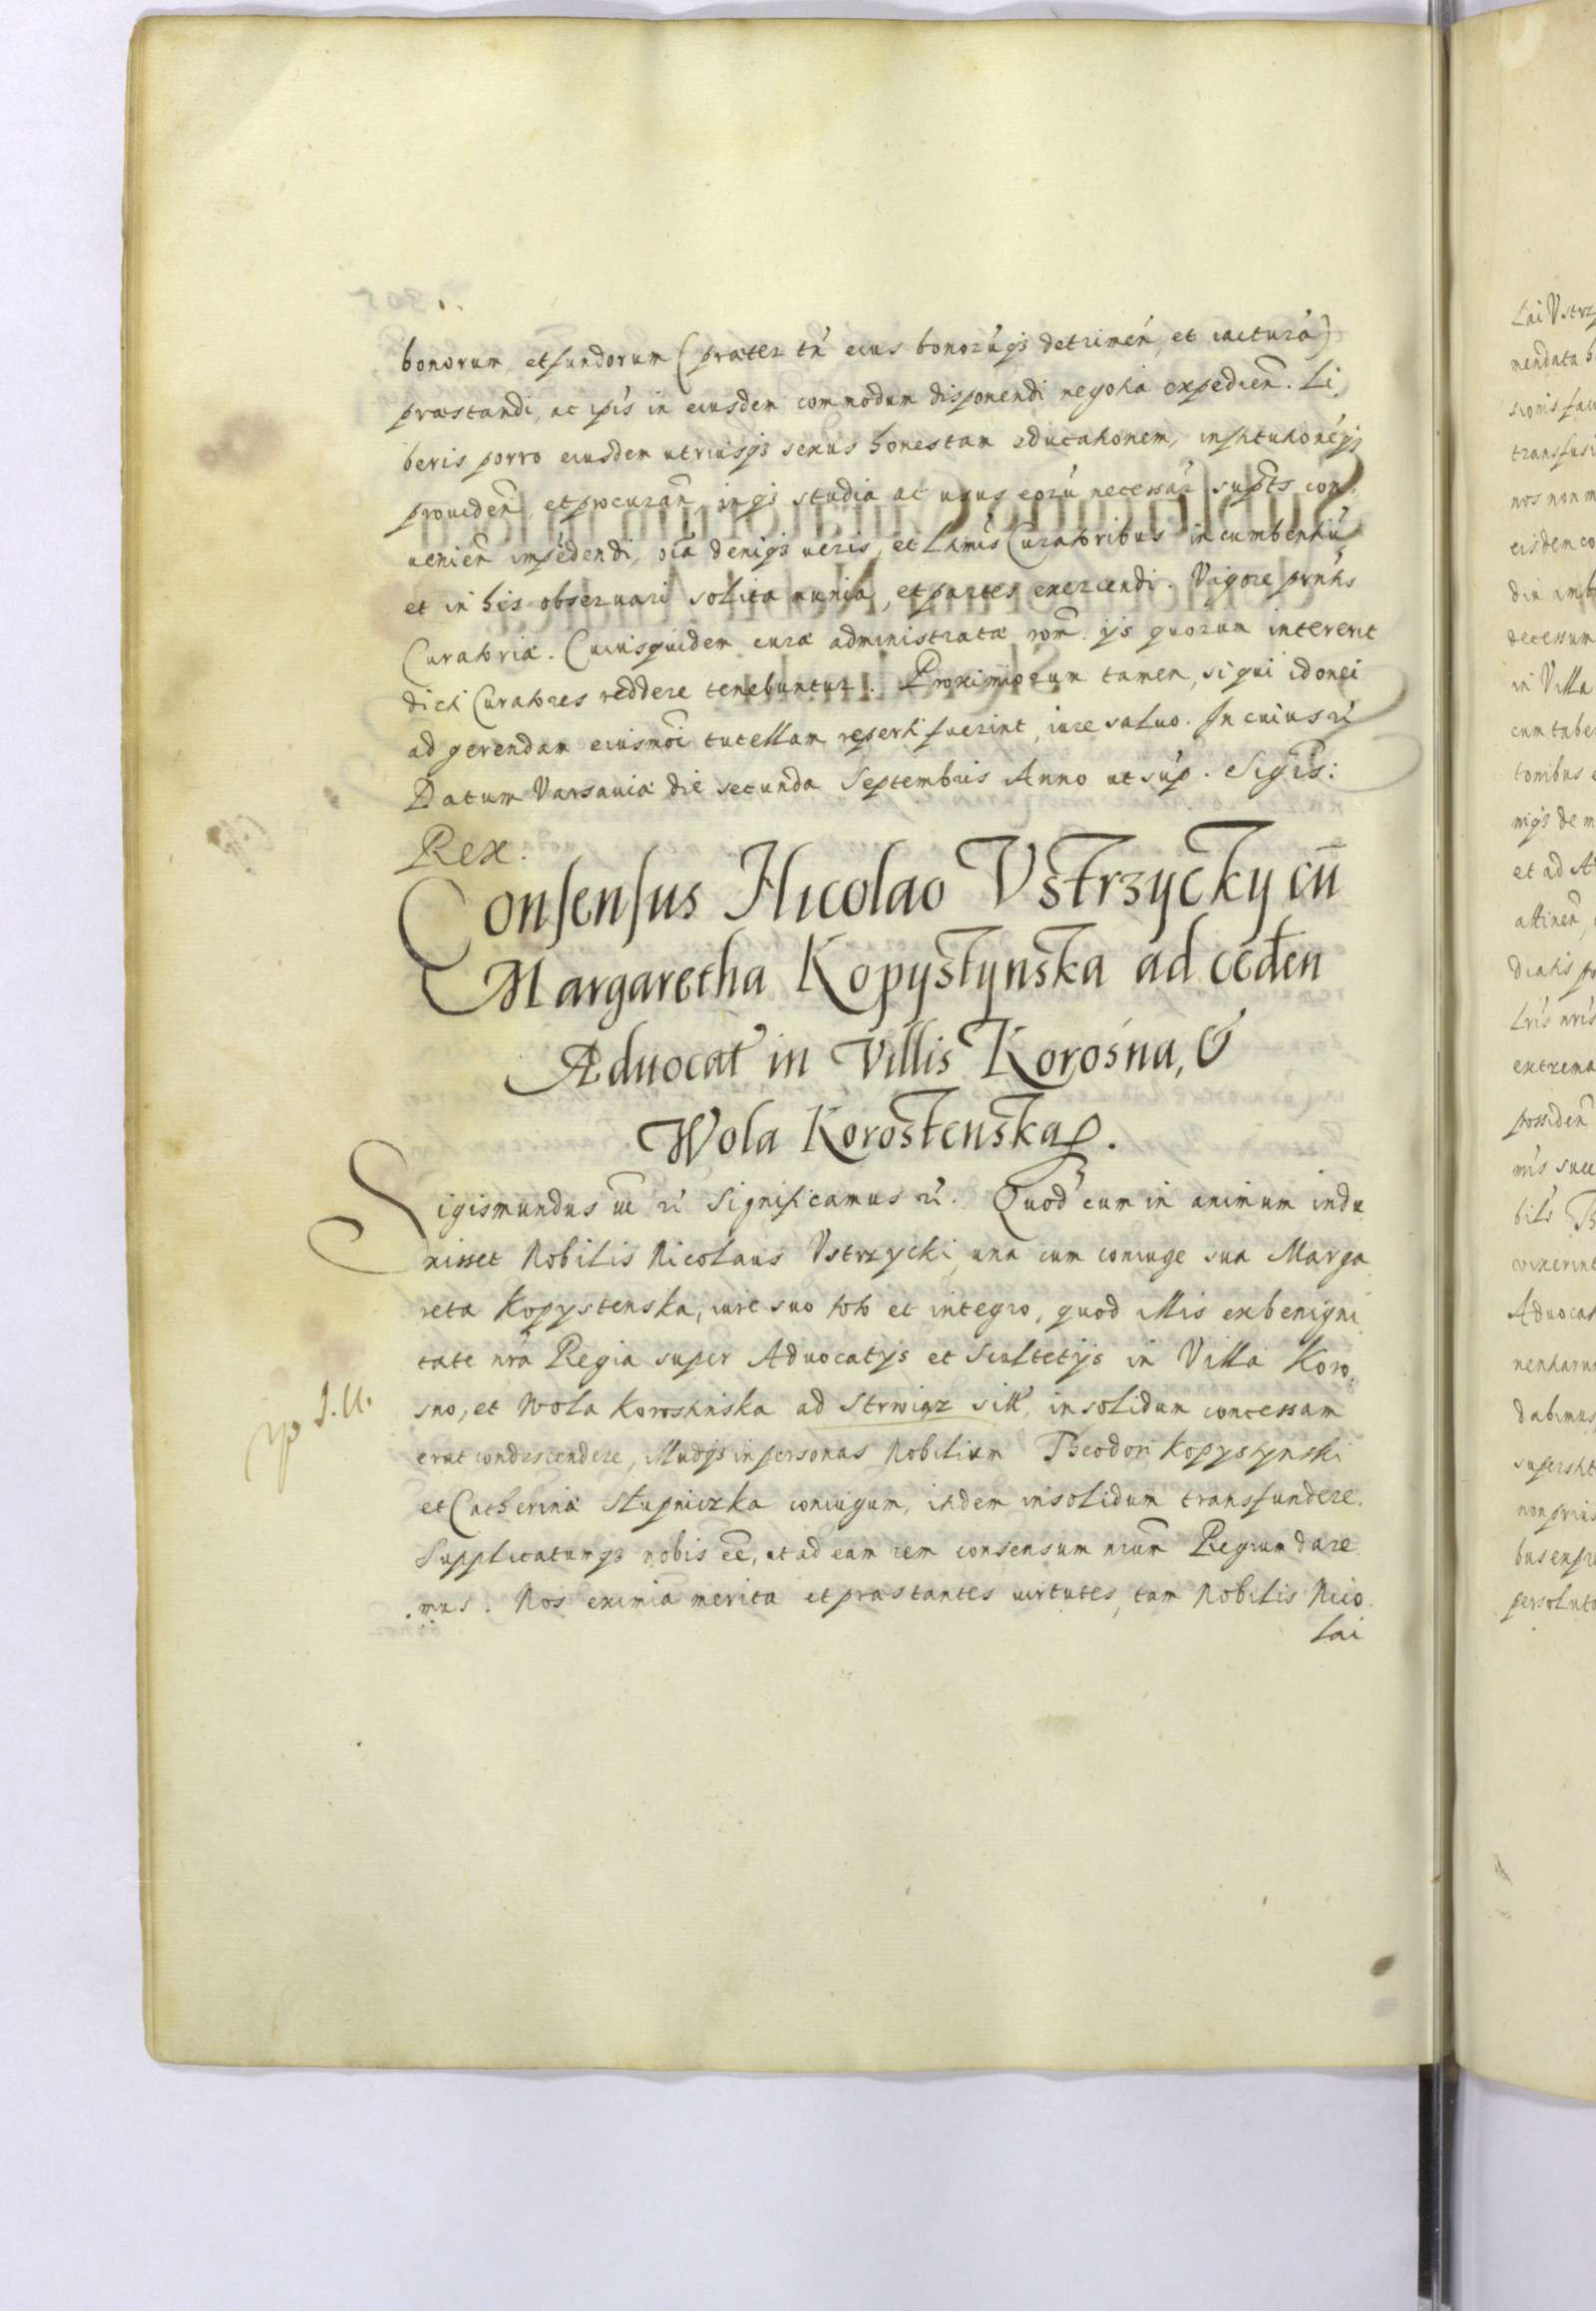 bonorum, et fundorum (præter tń eius bonorúqз detrimeń, et iacturá)
præstandi, ac ipís in eiusdem commodum disponendi negotia expedieñ. Li,
beris porro eiusdem utriusqз sexus honestam educationem, institutionéqз
prouideñ, et procurañ, inqз studia ac usus eorú necessár supt̃s con,
uenieñ impédendi, oĩa deniqз ueris, et Ltmis Curatoribus incumbentiú,
et in his obseruari solita munia, et partes exercendi. Vigore pñtis
Curatoriæ. Cuiusquidem curæ administratæ roñ. ijs quorum intererit
dicti Curatores reddere tenebuntur. Proximiorum tamen, si qui idonei
ad gerendam eiusmoĩ tutellam reperti fuerint, iure saluo. In cuius rí
Datum Varsauiæ die secunda Septembris Anno ut súp. Sigis:
Rex.
Consensus Nicolao Vstrzycky cũ
Margaretha Kopystynska ad ceden
Aduocat in Villis Korosna, &
Wola Korostenska.
Sigismundus uẽ rí Significamus rí. Quod cum in animum indu,
xisset Nobilis Nicolaus Vstrzycki, una cum coniuge sua Marga
reta Kopystenska, iure suo toto et integro, quod illis ex benigni
tate nrã Regia super Aduocatijs et Scultetijs in Villa Koro,
sno, et Wola Korostinska ad Strwiąz sitt, in solidum concessam
erat condescendere, illudqз in personas Nobilium Theodori Kopystynski
et Catherinæ Stupniczka coniugum, itidem in solidum transfundere.
Supplicatumqз nobis eẽ, ut ad eam rem consensum nrum̃ Regium dare
mus. Nos eximia merita et præstantes uirtutes, tam Nobilis Nico
lai